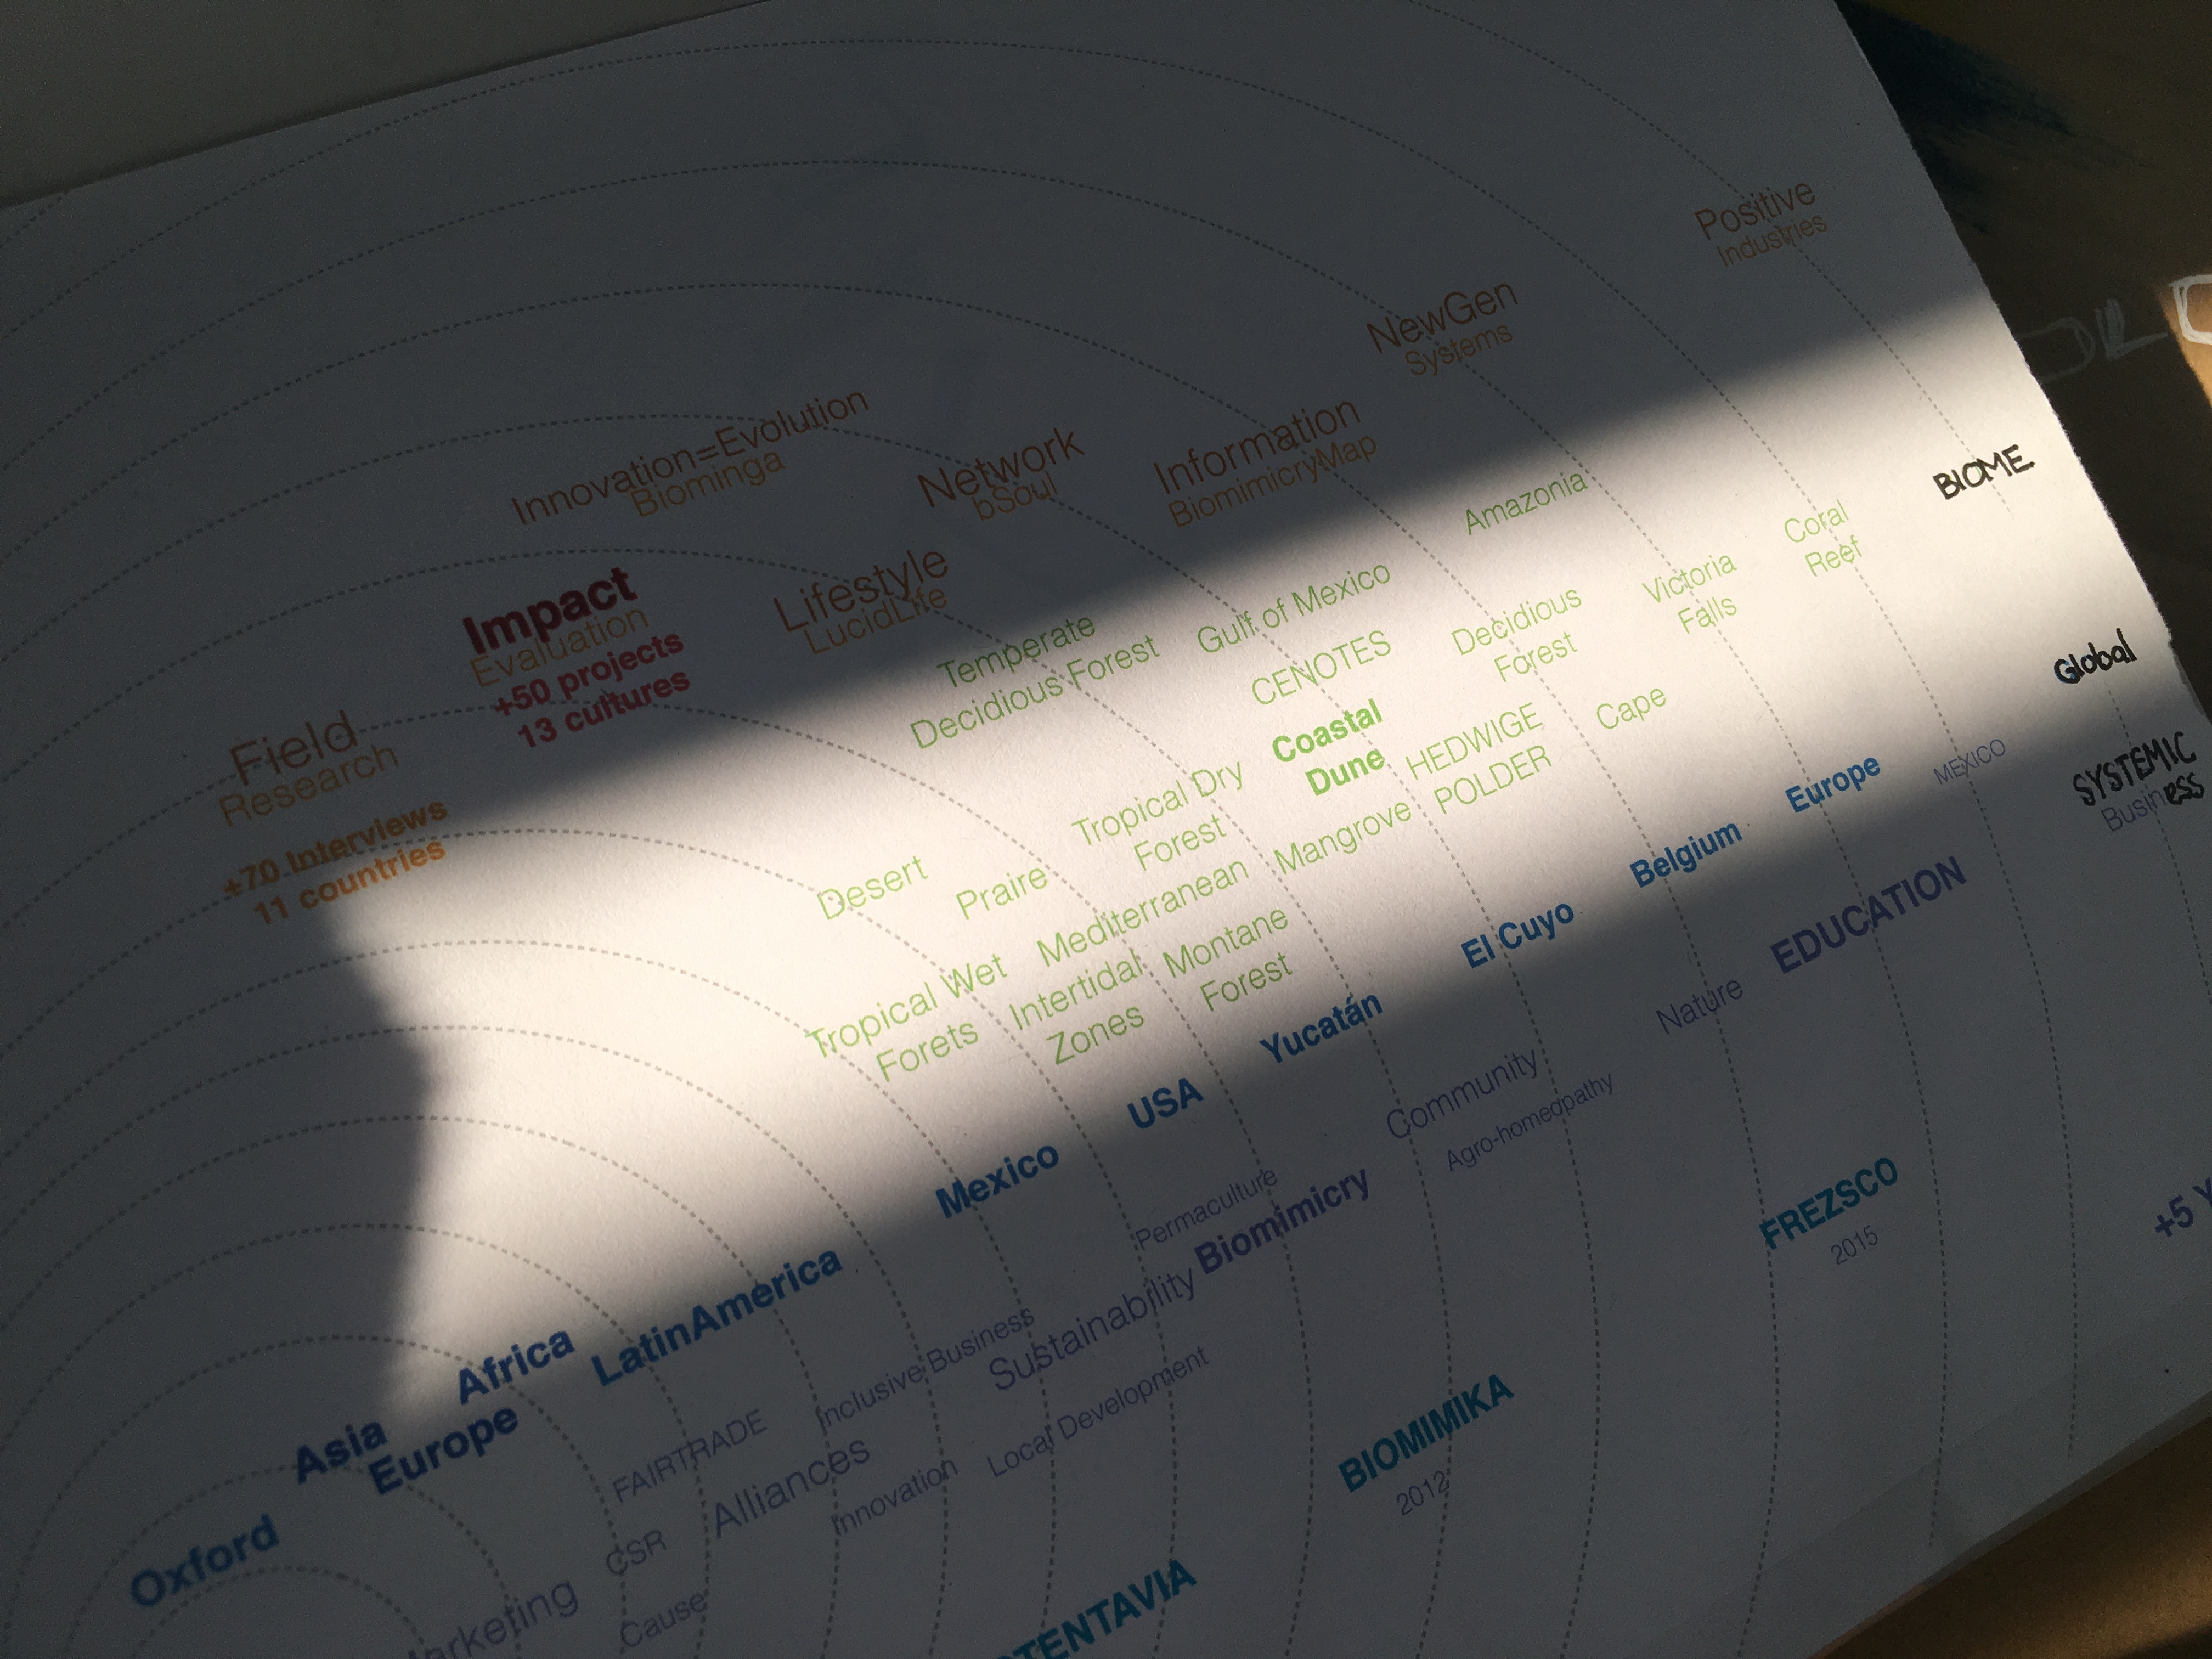 Positive
Industries
NewGen
Systems
Innovation=Evolution
Biominga
Network
bSoul
Information
BiomimicryMap
Impact
Evaluation
+50 projects
13 cultures
Lifestyle
LucidLife
Field
Research
+70 Interviews
11 countries
Amazonia
Coral
Reef
BIOME
Temperate
Decidious Forest
Gulf of Mexico
CENOTES
Decidious
Forest
Victoria
Falls
Coastal
Dune
HEDWIGE
POLDER
Cape
Global
Desert
Praire
Tropical Dry
Forest
Mediterranean
Mangrove
Tropical Wet
Forets
Intertidal
Zones
Montane
Forest
Oxford
Asia
Europe
Africa
LatinAmerica
Mexico
USA
Yucatán
El Cuyo
Belgium
Europe
MEXICO
SYSTEMIC
Business
arketing
CSR
Cause
FAIRTRADE
Alliances
Innovation
Inclusive Business
Sustainability
Local Development
Permaculture
Biomimicry
Community
Agro-homeopathy
Nature
EDUCATION
TENTAVIA
BIOMIMIKA
2012
FREZSCO
2015
+5 Y